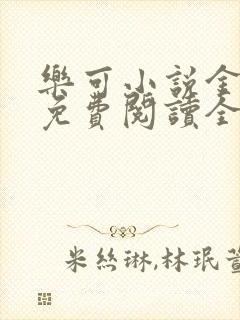 樂可小說全
免費閱讀全
米絲琳,林珉萱